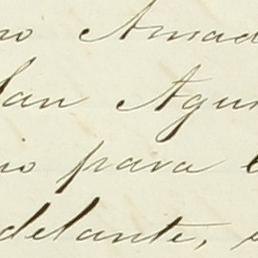 no Amad
San Agus
no para e
delante, e